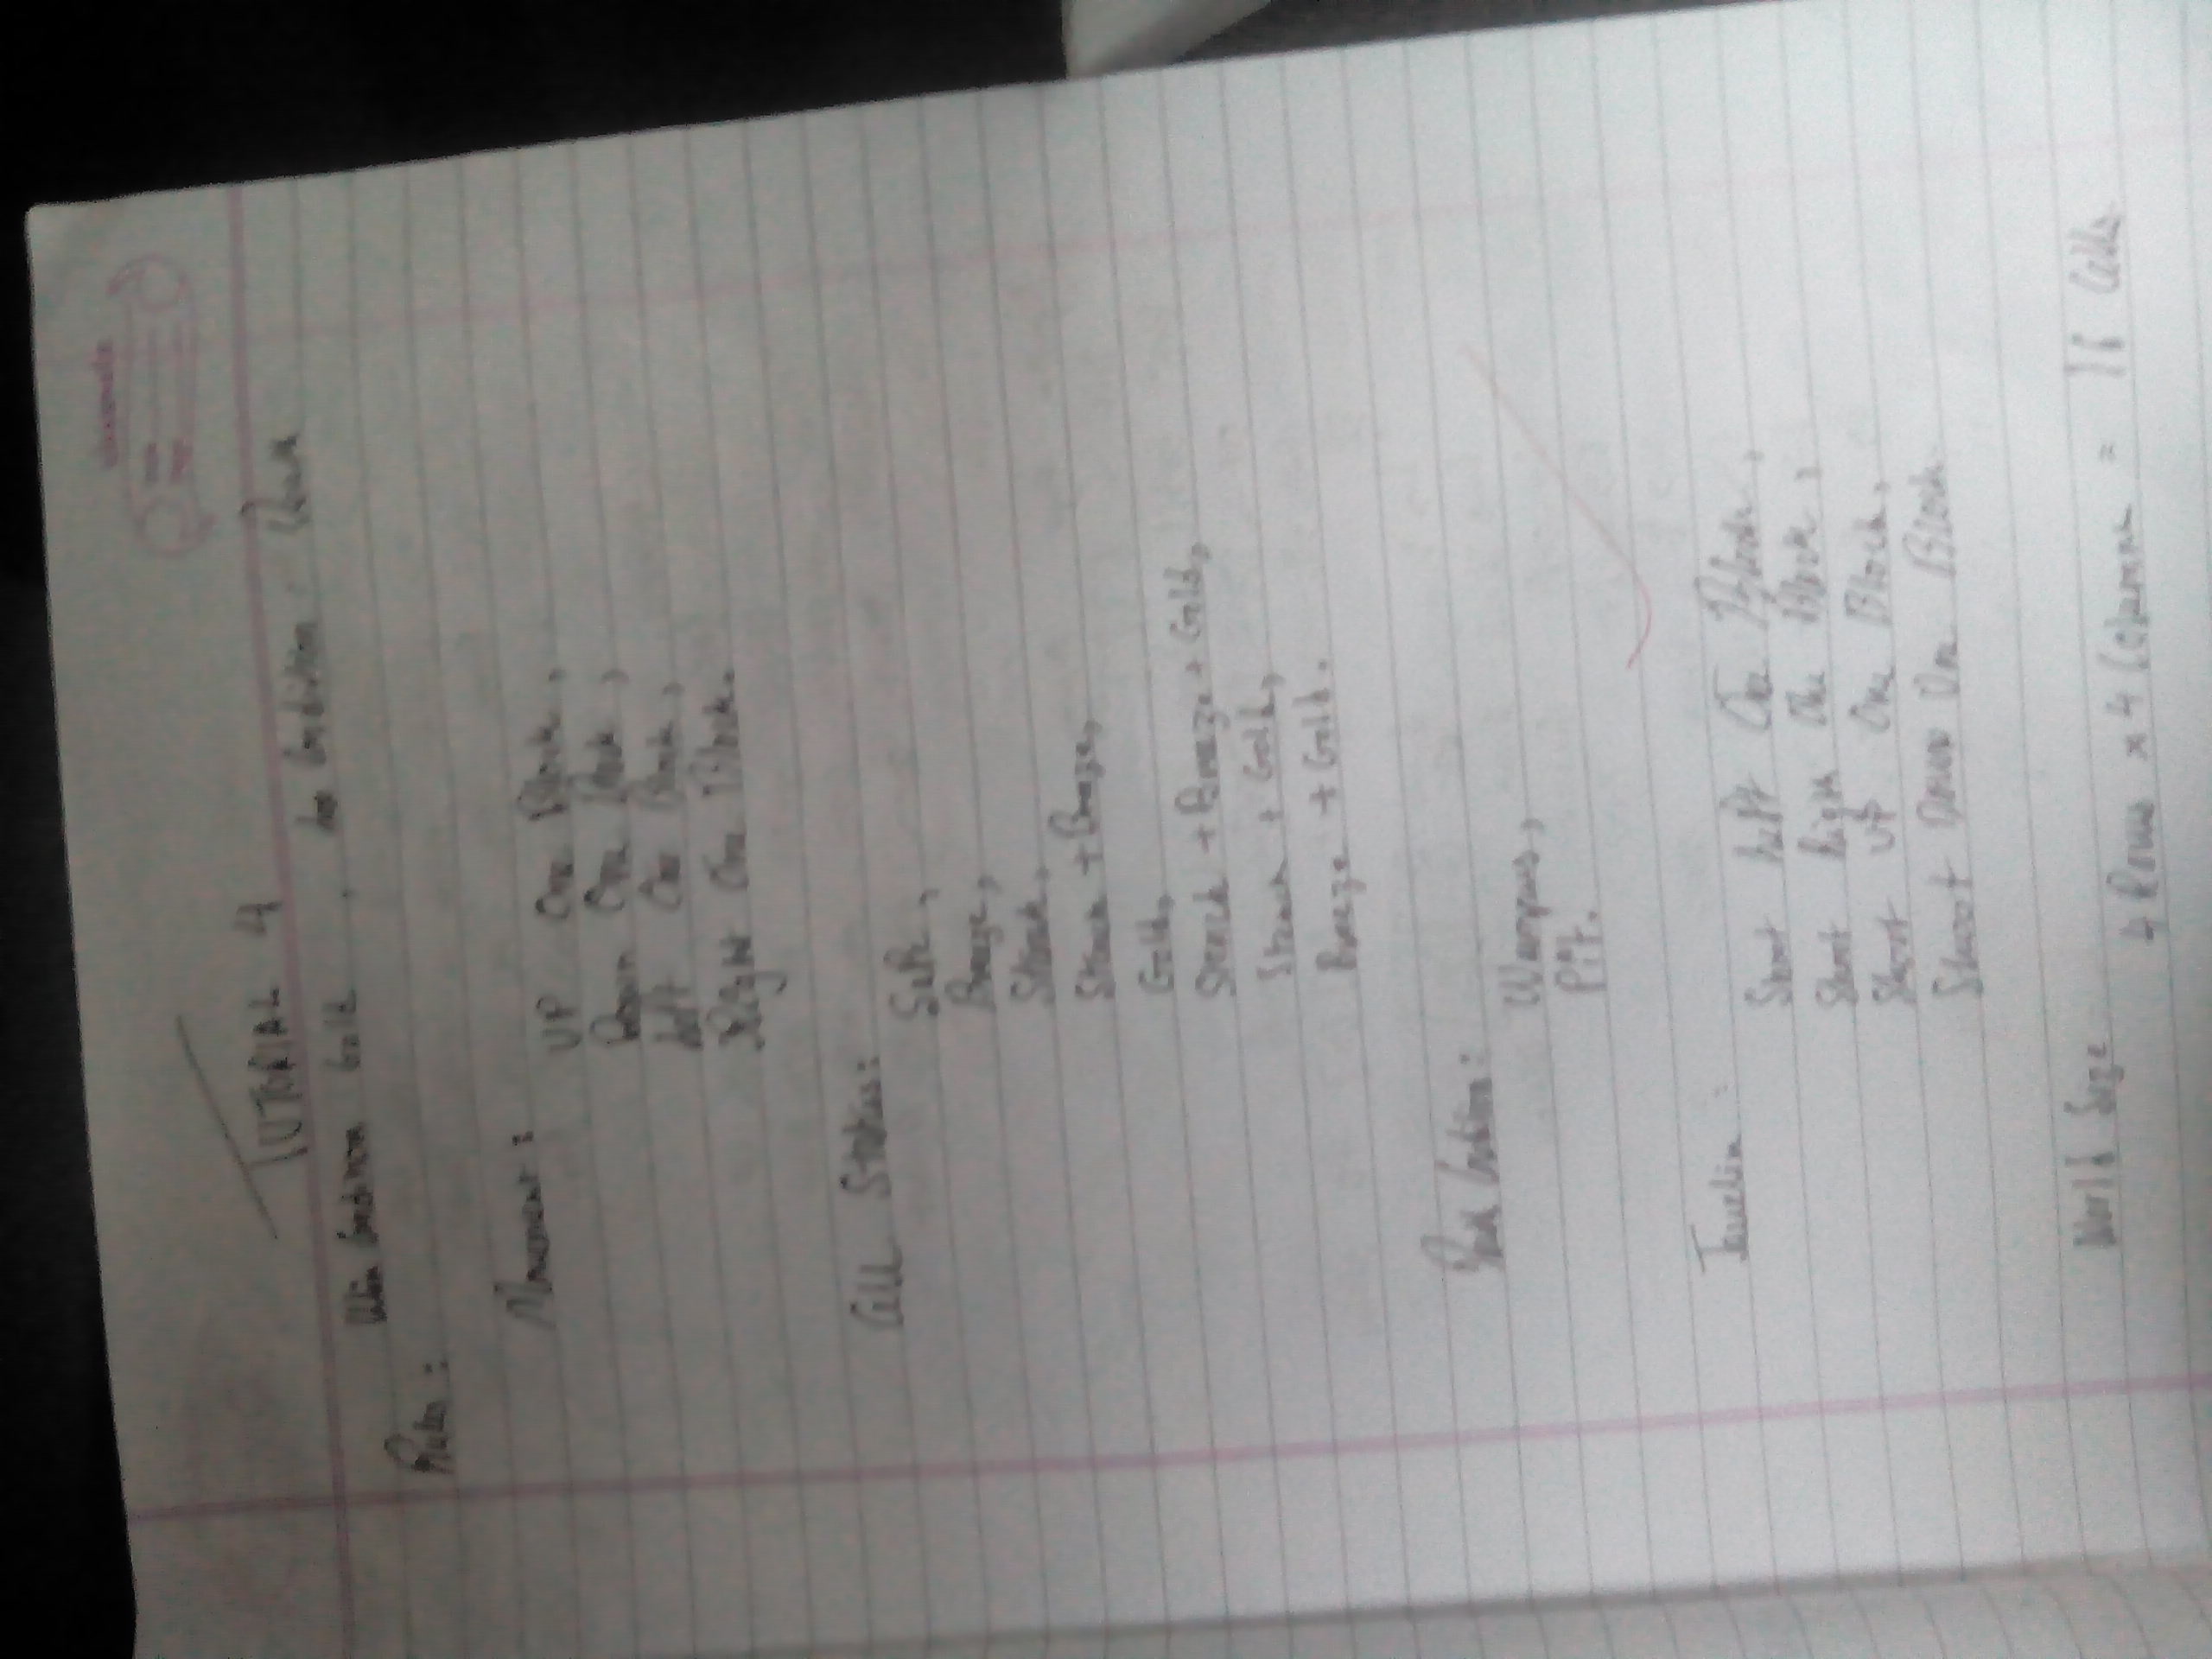 TUTORIAL 4
Win Condition Gold, Lose Condition, Death
Rules:
Movement:
UP One Block,
Down One Block,
Left One Block,
Right One Block.
Cell Status:
Safe,
Breeze,
Stench,
Stench + Breeze,
Gold,
Stench + Breeze + Gold,
Stench + Gold,
Breeze + Gold.
Condition:
Wumpus,
Pit.
Javelin:
Shoot Left One Block,
Shoot Right One Block,
Shoot UP One Block,
Shoot Down On Block
World Size
4 Rows x 4 Columns = 16 Cells